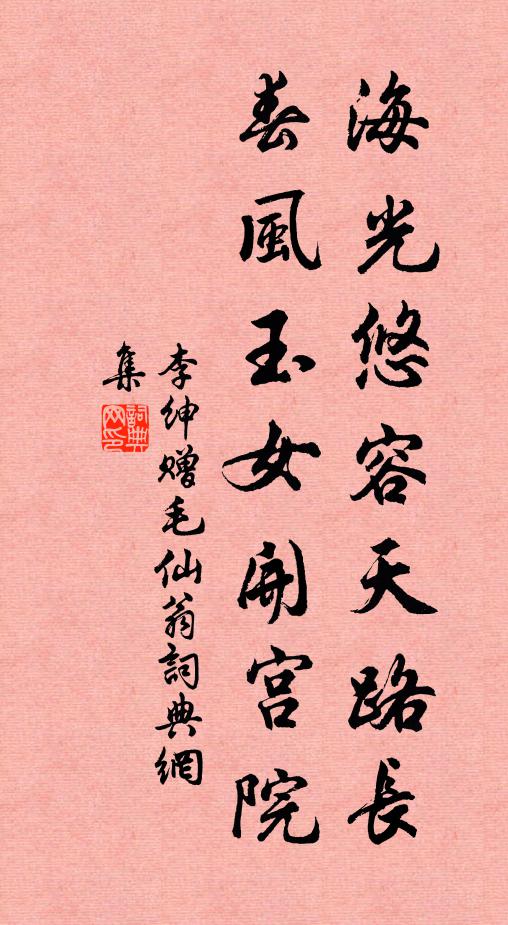 海光悠容天路長
春風玉女開宫院
李紳赠毛仙翁詞典網
集
詞典
网印